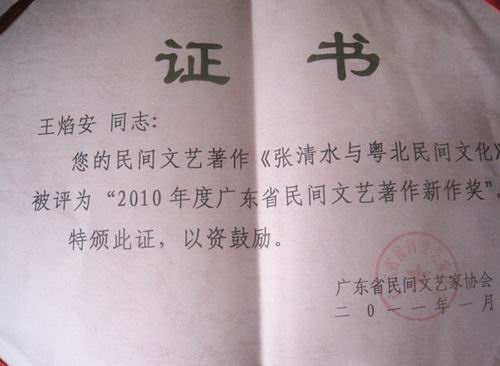 证书
王焰安 同志：
您的民间文艺著作《张清水与粤北民间文化》
被评为“2010年度广东省民间文艺著作新作奖”。
特颁此证，以资鼓励。
广东省民间文艺家协会
二0一一年一月